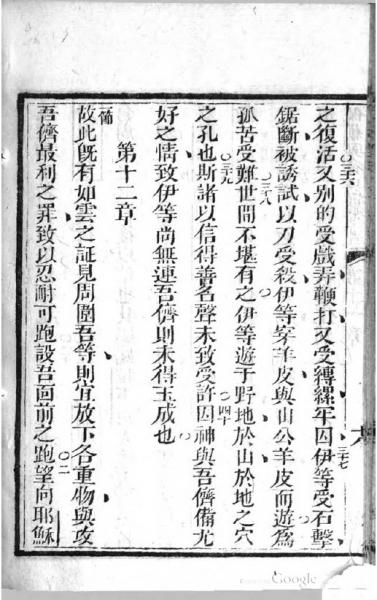 之復活又別的受戲弄鞭打又受縛縲牢囚伊等受石擊
鋸斷被誘試以刀受殺伊等穿羊皮與山公羊皮而遊為
孤苦受難世間不堪有之伊等遊于野地於山於地之穴
之孔也斯諸以信得善名聲未致受許因神與吾儕備尤
好之情致伊等尚無連吾儕則未得玉成也
第十二章
故此既有如雲之証見周圍吾等則宜放下各重物與攻
吾儕最利之罪致以忍耐可跑設吾面前之跑望向耶穌
Google